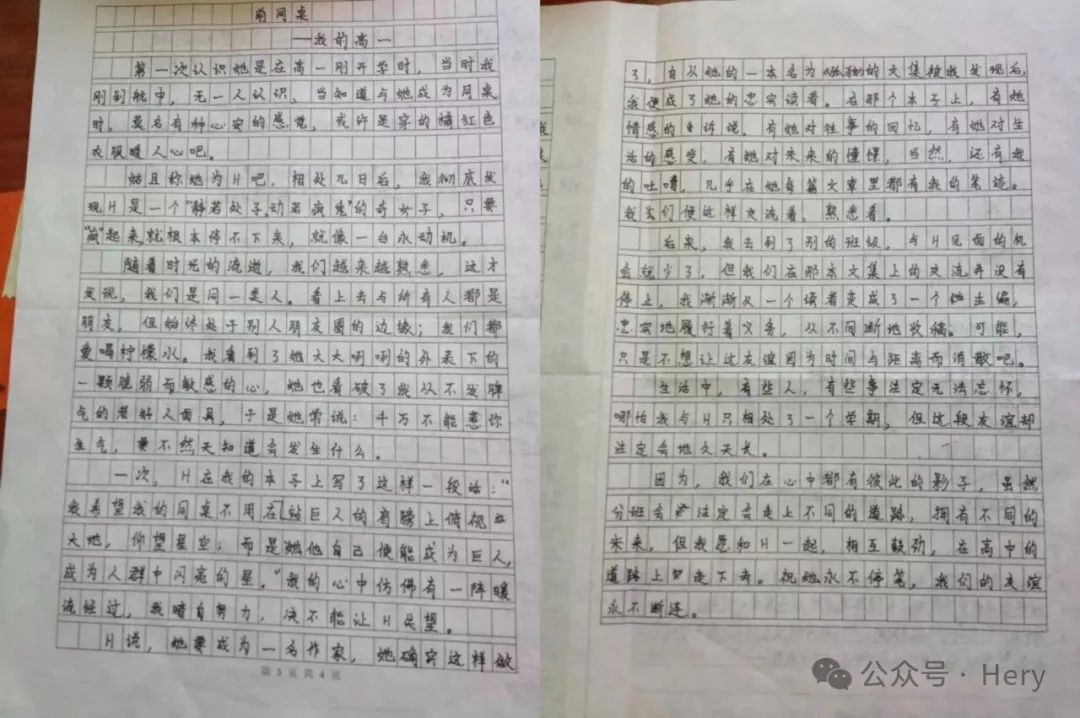 前同桌
——我的高一
第一次认识她是在高一刚开学时，当时我
刚到航中，无一人认识，当知道与她成为同桌
时，莫名有种心安的感觉，或许是穿的橘红色
衣服暖人心吧。
姑且称她为H吧，相处几日后，我彻底发
现H是一个“静若处子，动若疯兔”的奇女子，只要
“疯”起来，就根本停不下来，就像一台永动机。
随着时光的流逝，我们越来越熟悉，这才
发现，我们是同一类人。看上去与所有人都是
朋友，但始终处于别人朋友圈的边缘；我们都
爱喝柠檬水。我看到了她大大咧咧的外表下的
一颗脆弱而敏感的心，她也看破了我从不发脾
气的老好人面具，于是她常说：千万不能惹你
生气，要不然天知道会发生什么。
一次，H在我的本子上写了这样一段话：“
我希望我的同桌不用在站巨人的肩膀上俯视
大地，仰望星空；而是她他自己便能成为巨人，
成为人群中闪亮的星。”我的心中仿佛有一阵暖
流经过，我暗自努力，决不能让H失望。
H说，她要成为一名作家，她确实这样做
第3页共4页
了，自从她的一本名为的文集被我发现后，
我便成了她的忠实读者。在那个本子上，有她
情感的诉说，有她对往事的回忆，有她对生
活的感受，有她对未来的憧憬，当然，还有我
的吐嘈，几乎在她每篇文章里都有我的笔迹。
我们便这样交流着，熟悉着。
后来，我去到了别的班级，与H见面的机
会就少了，但我们在那本文集上的交流并没有
停止，我渐渐又一个读者变成了一个催生编，
忠实地履行着义务，从不间断地收稿。可能，
只是不想让这友谊因为时间与距离而消散吧。
生活中，有些人，有些事注定无法忘怀，
哪怕我与H只相处了一个学期，但这段友谊却
注定会地久天长。
因为，我们在心中都有彼此的影子，虽然
分班会注定会走上不同的道路，拥有不同的
未来，但我愿和H一起，相互鼓劲，在高中的
道路上走下去。祝她永不停笔，我们的友谊
永不断连。
公众号·Hery